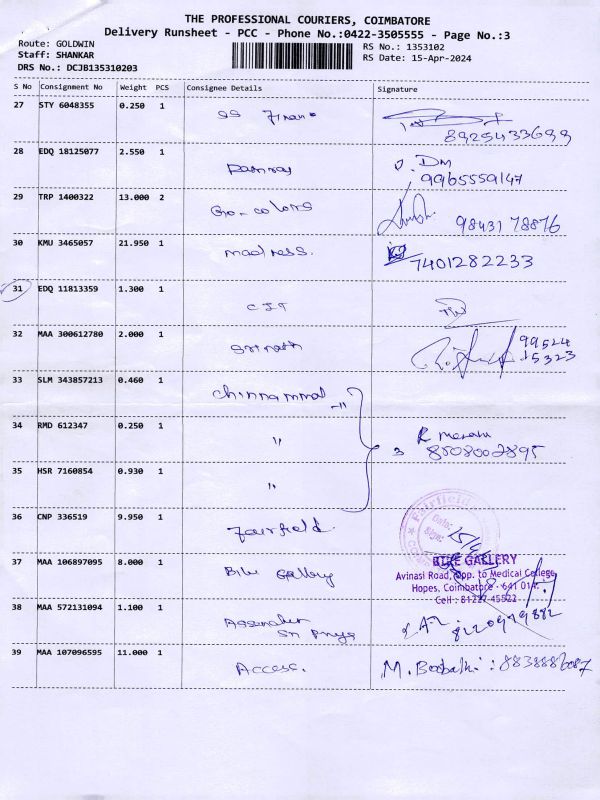 THE PROFESSIONAL COURIERS, COIMBATORE
Delivery Runsheet - PCC - Phone No.:0422-3505555 - Page No.:3
Route: GOLDWIN RS No.: 1353102
Staff: SHANKAR RS Date: 15-Apr-2024
DRS No.: DCJB135310203
S No Consignment No Weight PCS Consignee Details Signature
27 STY 6048355 0.250 1
28 EDQ 18125077 2.550 1
9965559147
29 TRP 1400322 13.000 2
9843178876
30 KMU 3465057 21.950 1 madress.
7401282233
31 EDQ 11813359 1.300 1 CIT
32 MAA 300612780 2.000 1 Srinath
99524
15323
33 SLM 343857213 0.460 1 Chinnammal
34 RMD 612347 0.250 1 "
35 HSR 7160854 0.930 1 "
36 CNP 336519 9.950 1 Fairfield.
Fairfield
Date:
Sign:
37 MAA 106897095 8.000 1 Bike Gallery
BIKE GALLERY
Avinasi Road, Opp. to Medical College,
Hopes, Coimbatore - 641 014.
Cell : 81227 45522
38 MAA 572131094 1.100 1
39 MAA 107096595 11.000 1 Access.